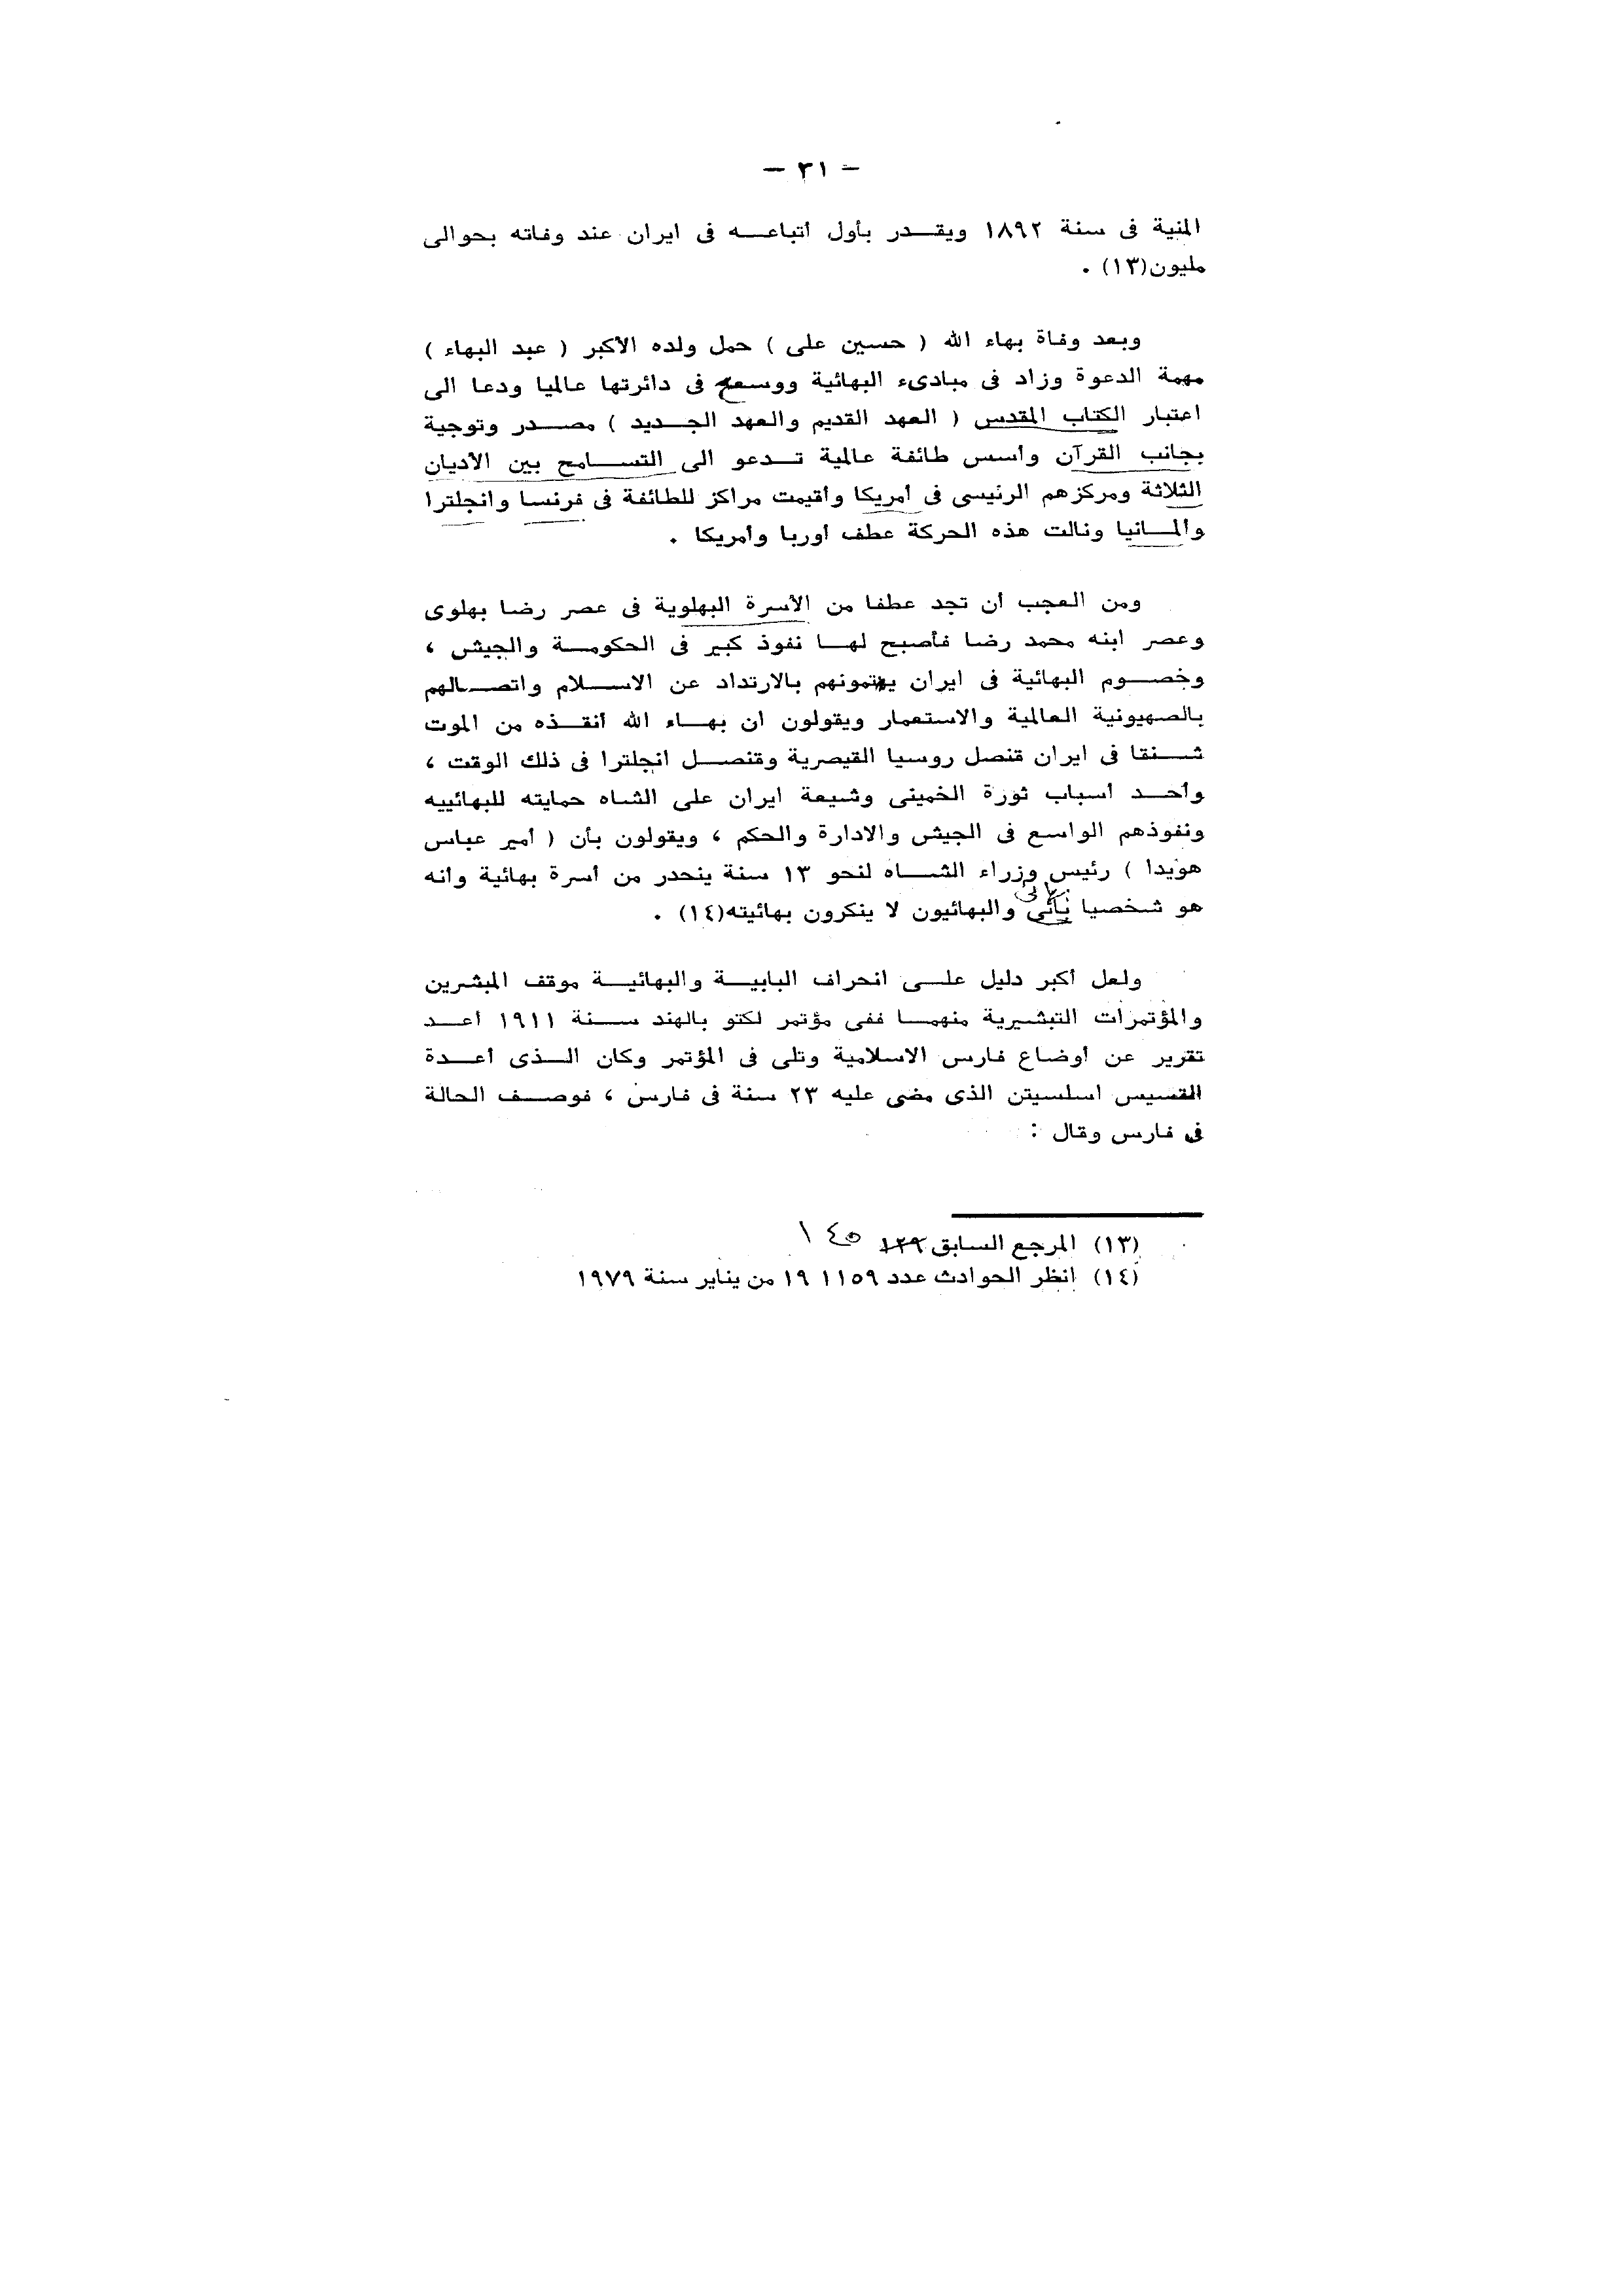 — ٣١ —
المنية فى سنة ١٨٩٢ ويقدر بأول أتباعه فى ايران عند وفاته بحوالى
مليون(١٣) .
وبعد وفاة بهاء الله ( حسين على ) حمل ولده الأكبر ( عبد البهاء )
مهمة الدعوة وزاد فى مبادىء البهائية ووسع فى دائرتها عالميا ودعا الى
اعتبار الكتاب المقدس ( العهد القديم والعهد الجديد ) مصدر وتوجية
بجانب القرآن وأسس طائفة عالمية تدعو الى التسامح بين الأديان
الثلاثة ومركزهم الرئيسى فى أمريكا وأقيمت مراكز للطائفة فى فرنسا وانجلترا
والمانيا ونالت هذه الحركة عطف أوربا وأمريكا .
ومن العجب أن تجد عطفا من الأسرة البهلوية فى عصر رضا بهلوى
وعصر ابنه محمد رضا فأصبح لها نفوذ كبير فى الحكومة والجيش ،
وخصوم البهائية فى ايران يهتمونهم بالارتداد عن الاسلام واتصالهم
بالصهيونية العالمية والاستعمار ويقولون ان بهاء الله أنقذه من الموت
شنقا فى ايران قنصل روسيا القيصرية وقنصل انجلترا فى ذلك الوقت ،
وأحد أسباب ثورة الخمينى وشيعة ايران على الشاه حمايته للبهائييه
ونفوذهم الواسع فى الجيش والادارة والحكم ، ويقولون بأن ( أمير عباس
هويدا ) رئيس وزراء الشاه لنحو ١٣ سنة ينحدر من أسرة بهائية وأنه
هو شخصيا والبهائيون لا ينكرون بهائيته(١٤) .
ولعل أكبر دليل على انحراف البابية والبهائية موقف المبشرين
والمؤتمرات التبشيرية منهما ففى مؤتمر لكتو بالهند سنة ١٩١١ أعد
تقرير عن أوضاع فارس الاسلامية وتلى فى المؤتمر وكان الذى أعدة
القسيس اسلسيتن الذى مضى عليه ٢٣ سنة فى فارس ، فوصف الحالة
فى فارس وقال :
(١٣) المرجع السابق ١٢٩ ١٤٥
(١٤) انظر الحوادث عدد ١١٥٩ ١٩ من يناير سنة ١٩٧٩